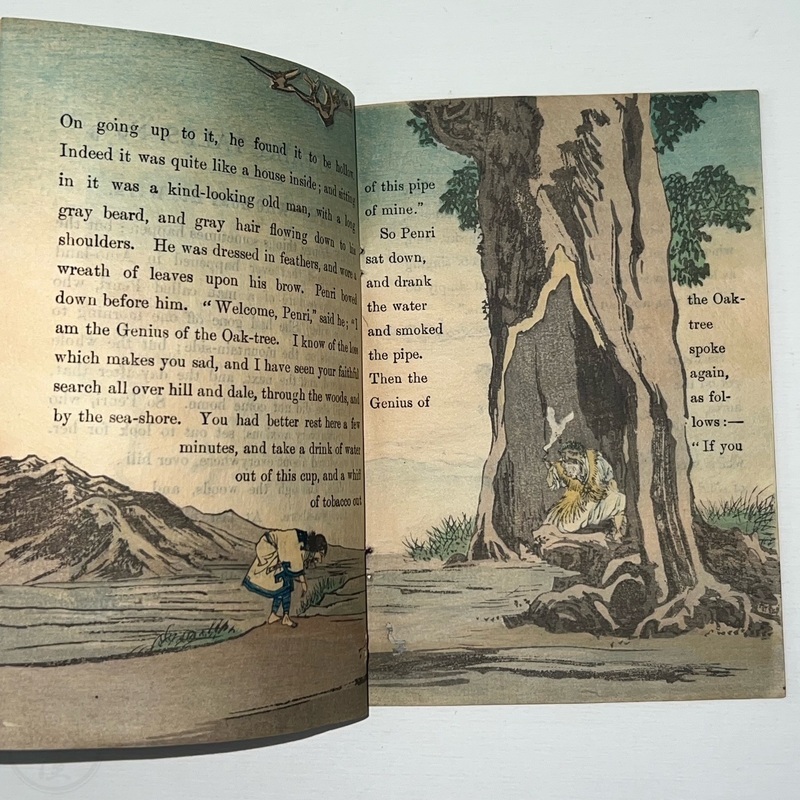 On going up to it, he found it to be hollow.
Indeed it was quite like a house inside; and sitting
in it was a kind-looking old man, with a long
gray beard, and gray hair flowing down to his
shoulders. He was dressed in feathers, and wore a
wreath of leaves upon his brow. Penri bowed
down before him. “Welcome, Penri,” said he; “I
am the Genius of the Oak-tree. I know of the loss
which makes you sad, and I have seen your faithful
search all over hill and dale, through the woods, and
by the sea-shore. You had better rest here a few
minutes, and take a drink of water
out of this cup, and a whiff
of tobacco out
of this pipe
of mine.”
So Penri
sat down,
and drank
the water
and smoked
the pipe.
Then the
Genius of
the Oak-
tree
spoke
again,
as fol-
lows:—
“If you